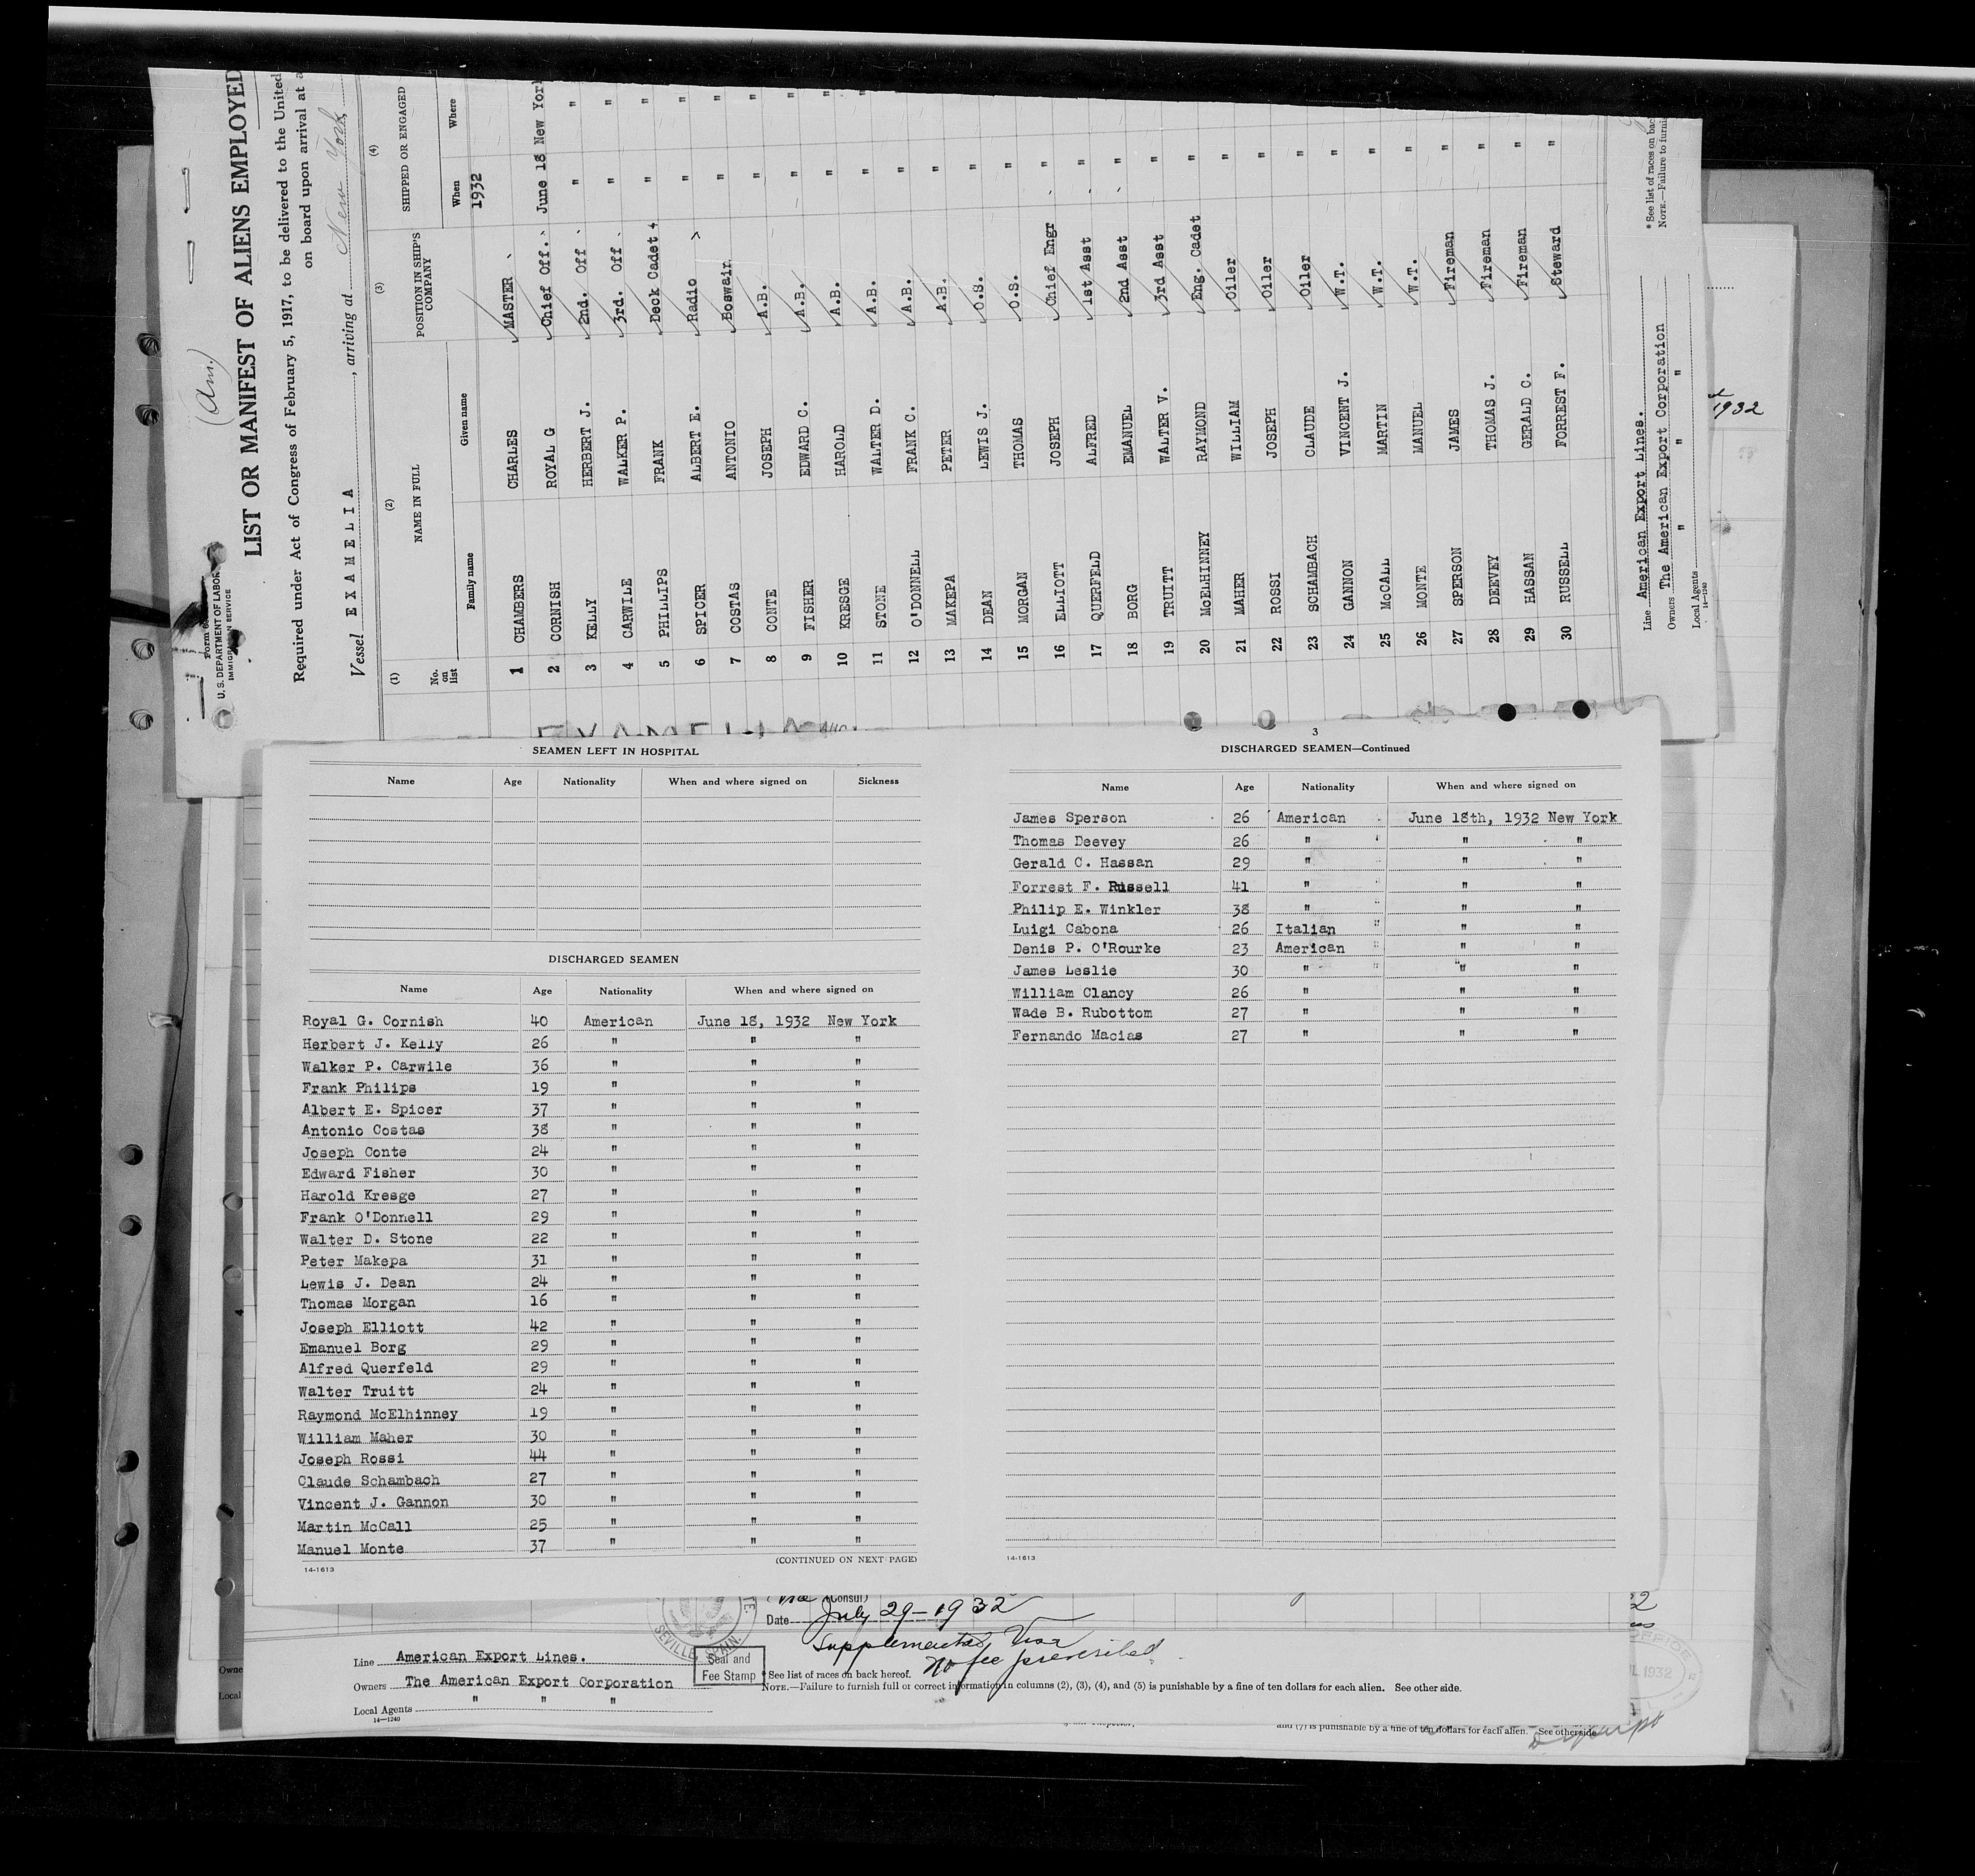 (Am.)
U. S. DEPARTMENT OF LABOR
IMMIGRATION SERVICE
LIST OR MANIFEST OF ALIENS EMPLOYED
Required under Act of Congress of February 5, 1917, to be delivered to the United
on board upon arrival at a
Vessel EXAMELIA, arriving at New York
(1) (2) (3) (4)
No. on list NAME IN FULL POSITION IN SHIP'S COMPANY SHIPPED OR ENGAGED
Family name Given name When Where
1932
1 CHAMBERS CHARLES MASTER
2 CORNISH ROYAL G Chief Off. June 18 New York
3 KELLY HERBERT J. 2nd. Off " "
4 CARWILE WALKER P. 3rd. Off " "
5 PHILLIPS FRANK Deck Cadet " "
6 SPICER ALBERT E. Radio " "
7 COSTAS ANTONIO Boswain " "
8 CONTE JOSEPH A.B. " "
9 FISHER EDWARD C. A.B. " "
10 KRESGE HAROLD A.B. " "
11 STONE WALTER D. A.B. " "
12 O'DONNELL FRANK C. A.B. "
13 MAKEPA PETER A.B. "
14 DEAN LEWIS J. O.S. "
15 MORGAN THOMAS O.S. "
16 ELLIOTT JOSEPH Chief Engr "
17 QUERFELD ALFRED 1st Asst "
18 BORG EMANUEL 2nd Asst "
19 TRUITT WALTER V. 3rd Asst "
20 McELHINNEY RAYMOND Eng. Cadet "
21 MAHER WILLIAM Oiler "
22 ROSSI JOSEPH Oiler "
23 SCHAMBACH CLAUDE Oiler "
24 GANNON VINCENT J. W.T. "
25 McCALL MARTIN W.T. "
26 MONTE MANUEL W.T. "
27 SPERSON JAMES Fireman "
28 DEEVEY THOMAS J. Fireman "
29 HASSAN GERALD C. Fireman "
30 RUSSELL FORREST F. Steward "
Line American Export Lines.
Owners The American Export Corporation
Local Agents " " "
14-1240
*See list of races on bac
NOTE.—Failure to furni
1932
EXAMELIA
SEAMEN LEFT IN HOSPITAL
Name Age Nationality When and where signed on Sickness
DISCHARGED SEAMEN
Name Age Nationality When and where signed on
Royal G. Cornish 40 American June 18, 1932 New York
Herbert J. Kelly 26 " " "
Walker P. Carwile 36 " " "
Frank Philips 19 " " "
Albert E. Spicer 37 " " "
Antonio Costas 38 " " "
Joseph Conte 24 " " "
Edward Fisher 30 " " "
Harold Kresge 27 " " "
Frank O'Donnell 29 " " "
Walter D. Stone 22 " " "
Peter Makepa 31 " " "
Lewis J. Dean 24 " " "
Thomas Morgan 16 " " "
Joseph Elliott 42 " " "
Emanuel Borg 29 " " "
Alfred Querfeld 29 " " "
Walter Truitt 24 " " "
Raymond McElhinney 19 " " "
William Maher 30 " " "
Joseph Rossi 44 " " "
Claude Schambach 27 " " "
Vincent J. Gannon 30 " " "
Martin McCall 25 " " "
Manuel Monte 37 " " "
(CONTINUED ON NEXT PAGE)
14-1613
3
DISCHARGED SEAMEN—Continued
Name Age Nationality When and where signed on
James Sperson 26 American June 18th, 1932 New York
Thomas Deevey 26 " " "
Gerald C. Hassan 29 " " "
Forrest F. Russell 41 " " "
Philip E. Winkler 38 " " "
Luigi Cabona 26 Italian " "
Denis P. O'Rourke 23 American " "
James Leslie 30 " " "
William Clancy 26 " " "
Wade B. Rubottom 27 " " "
Fernando Macias 27 " " "
14-1613
(Vice Consul)
Date July 29-1932
Supplemental Visa
No fee prescribed
SEVILLE, SPAIN.
Seal and
Fee Stamp
Line American Export Lines.
Owners The American Export Corporation
Local Agents " " "
14-1240
*See list of races on back hereof.
NOTE.—Failure to furnish full or correct information in columns (2), (3), (4), and (5) is punishable by a fine of ten dollars for each alien. See other side.
and (7) is punishable by a fine of ten dollars for each alien. See other side
Owne
Local
OFFICE
1932